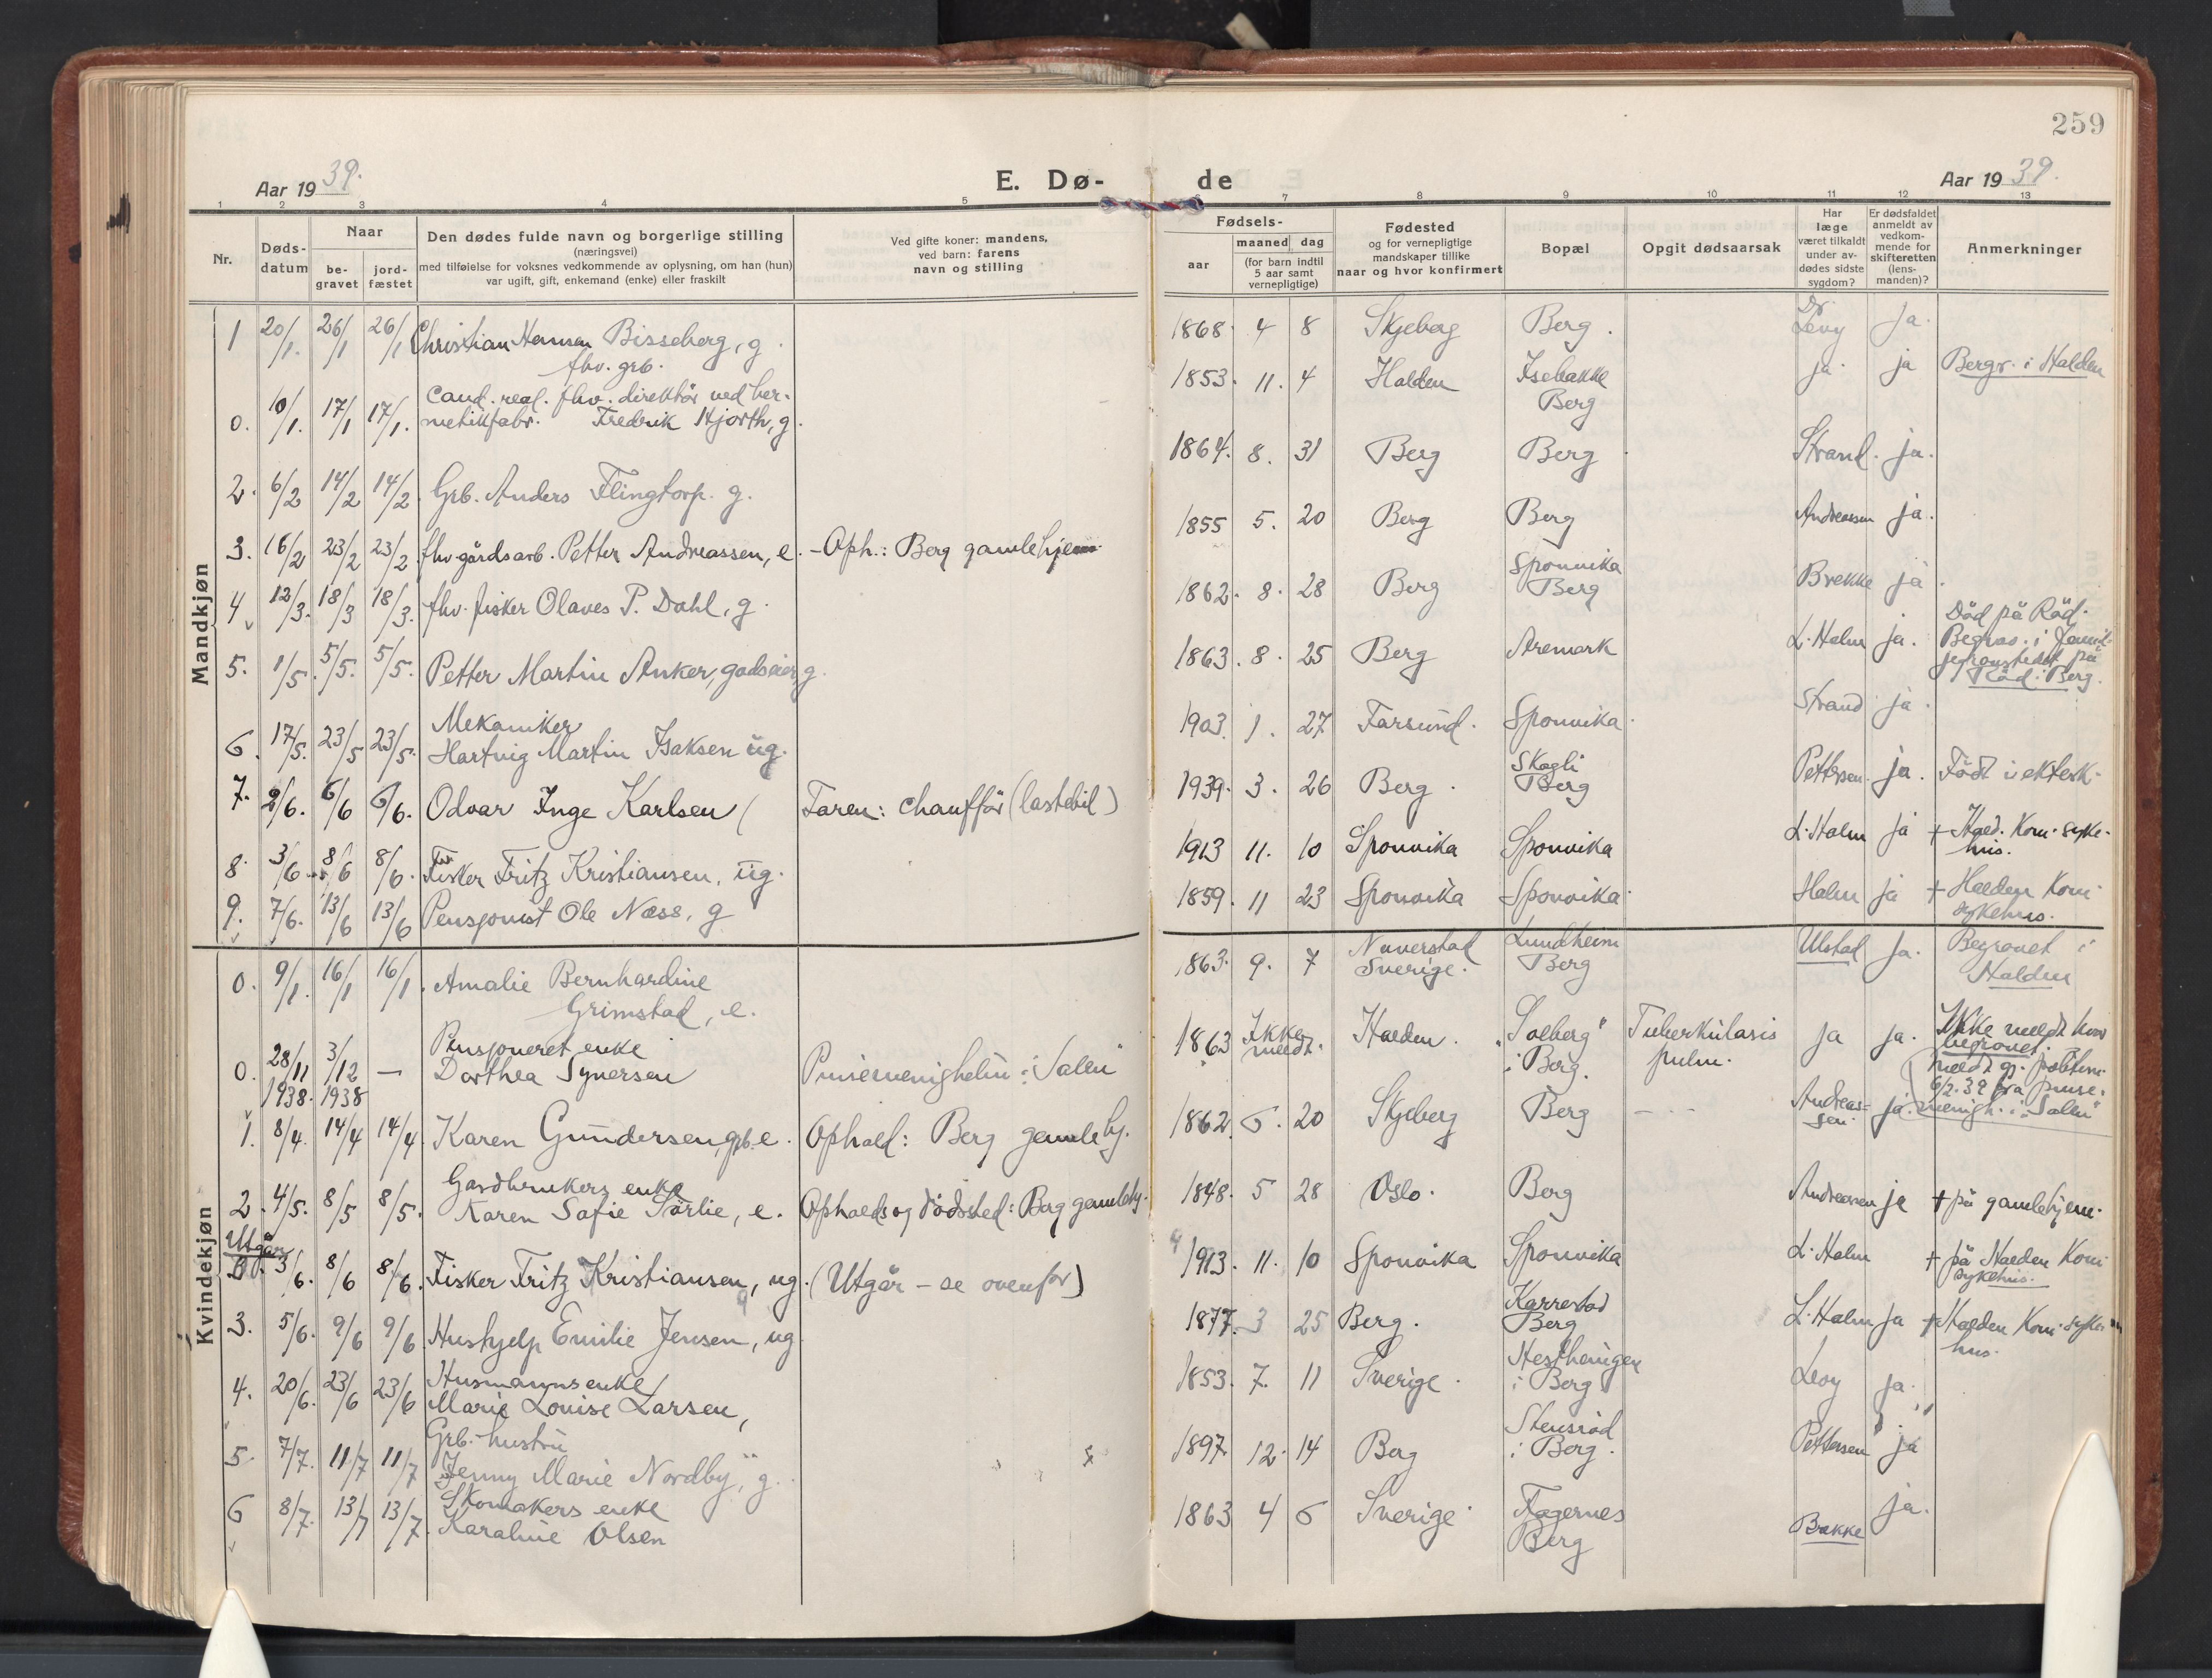 259
Aar 1939.
E. Dø-
de
Aar 1939.
1 2 3 4 5
6 7 8 9 10 11 12 13
Nr.
Døds-
datum
Naar
be-
gravet
jord-
fæstet
Den dødes fulde navn og borgerlige stilling
(næringsvei)
med tilføielse for voksnes vedkommende av oplysning, om han (hun)
var ugift, gift, enkemand (enke) eller fraskilt
Ved gifte koner: mandens,
ved barn: farens
navn og stilling
Fødsels-
aar
maaned dag
(for barn indtil
5 aar samt
vernepligtige)
Fødested
og for vernepligtige
mandskaper tillike
naar og hvor konfirmert
Bopæl
Opgit dødsaarsak
Har
læge
været tilkaldt
under av-
dødes sidste
sygdom?
Er dødsfaldet
anmeldt av
vedkom-
mende for
skifteretten
(lens-
manden)?
Anmerkninger
Mandkjøn
1 20/1. 26/1 26/1 Christian Hansen Bisseberg, g.
fhv. grb.
1868. 4 8 Skjeberg Berg. Dr. Levy ja.
0. 10/1. 17/1 17/1. Cand. real. fhv. direktör ved her-
metikfabr. Fredrik Hjorth, g.
1853. 11. 4 Halden Isebakke
Berg
ja. ja Begr. i Halden
2. 6/2 14/2 14/2. Grb. Anders Flingtorp. g.
1864. 8. 31 Berg Berg Strand. ja.
3. 16/2 23/2 23/2. fhv gårdsarb. Petter Andreassen, e. - Oph.: Berg gamlehjem
1855 5. 20 Berg Berg Andreassen ja.
4 12/3. 18/3 18/3. fhv. fisker Olaves P. Dahl, g.
1862. 8. 28 Berg Sponvika
Berg
Brekke ja.
5. 1/5. 5/5. 5/5. Petter Martin Anker, godseier, g.
1863. 8. 25 Berg Aremark L. Holm ja. Död på Röd.
Begrav. i famil-
jegravstedet på
Röd i Berg.
6. 17/5. 23/5 23/5. Mekaniker
Hartvig Martin Isaksen ug.
1903. 1. 27 Farsund. Sponvika. Strand ja.
7. 2/6. 6/6 6/6. Odvar Inge Karlsen ( Faren: chaufför (lastebil)
1939. 3. 26 Berg. Skogli
Berg
Pettersen. ja. Födt i ektesk.
8. 3/6 8/6 8/6. Fisker Fritz Kristiansen, ug.
1913 11. 10 Sponvika Sponvika L. Holm ja + Hald. Kom. syke-
hus.
9. 7/6. 13/6 13/6 Pensjonist Ole Næss, g
1859. 11 23 Sponvika Sponvika. Holm ja + Halden Kom.
sykehus.
Kvindekjøn
0. 9/1. 16/1 16/1. Amalie Bernhardine
Grimstad, e.
1863. 9. 7 Naverstad
Sverige.
Lundheim
Berg
Ulstad ja. Begravet i
Halden
0. 28/11 3/12 —
1938. 1938
Pensjoneret enke
Dorthea Synersen
Pinsemenigheten i "Salen"
1863 Ikke
meldt.
Halden. "Solberg"
i Berg.
Tuberkulosis
pulm.
ja ja. Ikke meldt hvor
begravet.
meldt gj. politim.
6/2. 39 fra pinse-
menigh. i "Salen"
1. 8/4. 14/4 14/4 Karen Gundersen, grb. e. Ophold: Berg gamlehj.
1862. 6. 20 Skjeberg Berg — - - Andreas-
sen.
ja.
2. 4/5. 8/5 8/5. Gardbrukers enke
Karen Sofie Sörlie, e. Opholds og dödssted: Berg gamlehj.
1848. 5 28 Oslo. Berg Andreassen ja + på gamlehjem.
Utgår
3/6. 8/6 8/6. Fisker Fritz Kristiansen, ug. (Utgår - se ovenfor)
1913. 11. 10 Sponvika Sponvika L. Holm + på Halden Kom.
sykehus.
3. 5/6. 9/6 9/6 Hushjelp Emilie Jensen, ug
1877. 3 25 Berg. Karrestad
Berg
L. Holm ja + Halden Kom. syke-
hus.
4. 20/6. 23/6 23/6 Husmannsenke
Marie Louise Larsen,
1853. 7. 11 Sverige.
i Berg
Levy ja.
5. 7/7. 11/7 11/7 Grb.-hustru
Jenny Marie Nordby, g.
1897. 12. 14 Berg Stensröd
i Berg.
Pettersen ja
6 8/7. 13/7 13/7. Skomakers enke
Karaline Olsen
1863 4 6 Sverige. Fagernes
Berg
Bakke ja.